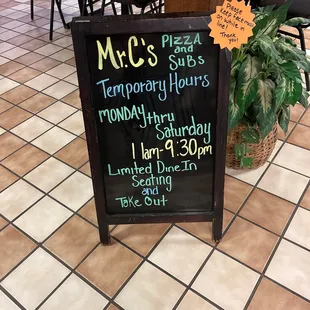 Mr. C's Pizza
and
Subs
Temporary Hours
Monday thru
Saturday
11am-9:30pm
Limited Dine In
Seating
and
Take Out
Please
Keep your
mask on
Thank you